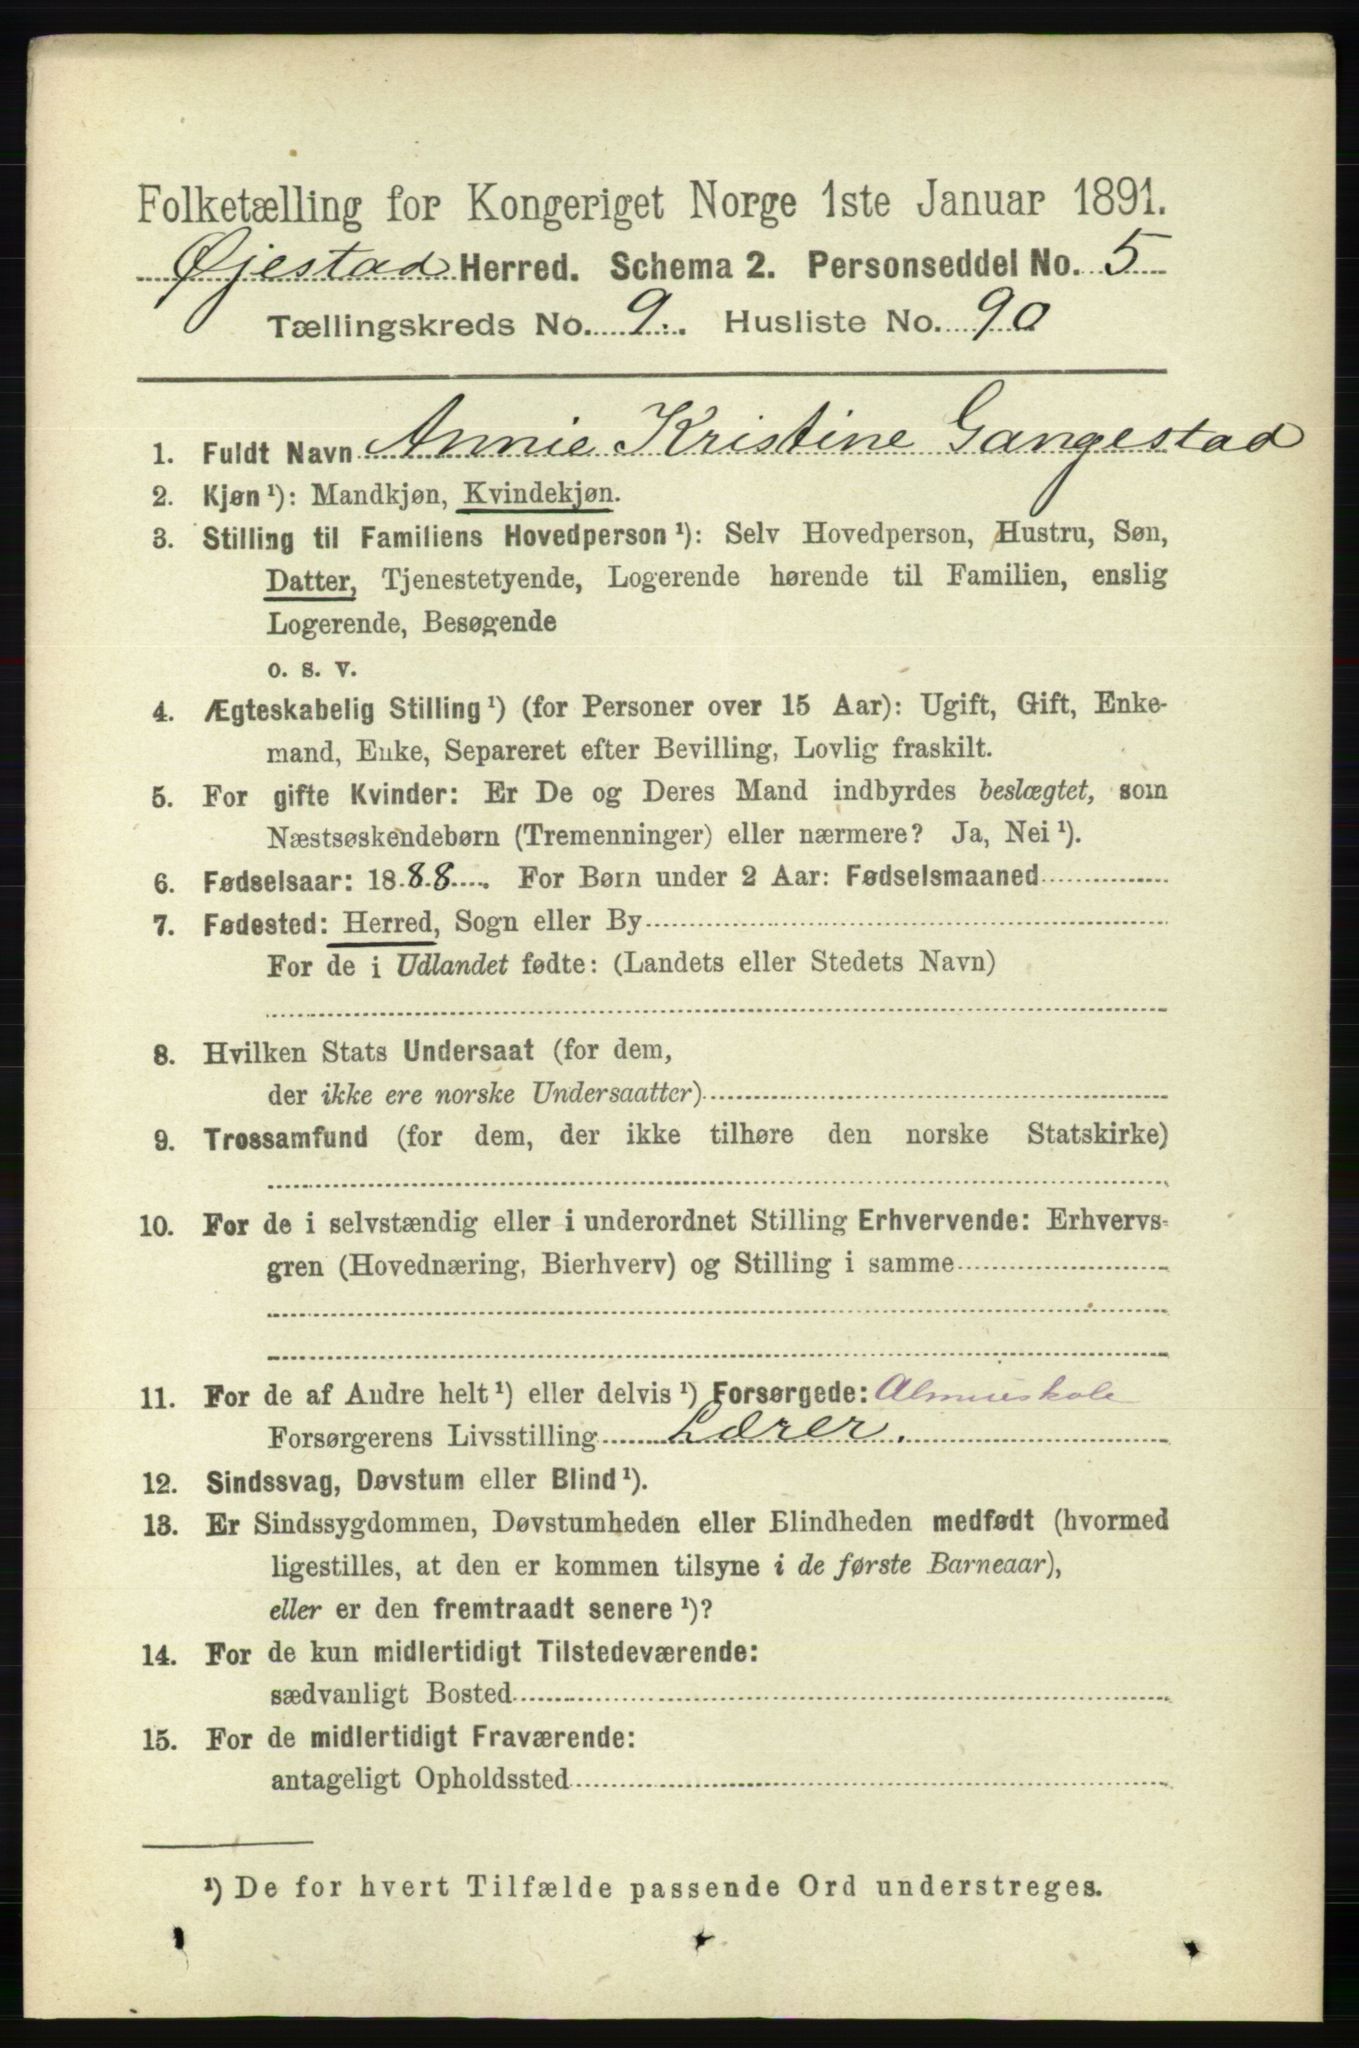 Folketælling for Kongeriget Norge 1ste Januar 1891.
Øjestad Herred. Schema 2. Personseddel No. 5
Tællingskreds No. 9. Husliste No. 90
1. Fuldt Navn Annie Kristine Gangestad
2. Kjøn¹): Mandkjøn, Kvindekjøn.
3. Stilling til Familiens Hovedperson¹): Selv Hovedperson, Hustru, Søn,
Datter, Tjenestetyende, Logerende hørende til Familien, enslig
Logerende, Besøgende
o. s. v.
4. Ægteskabelig Stilling¹) (for Personer over 15 Aar): Ugift, Gift, Enke-
mand, Enke, Separeret efter Bevilling, Lovlig fraskilt.
5. For gifte Kvinder: Er De og Deres Mand indbyrdes beslægtet, som
Næstsøskendebørn (Tremenninger) eller nærmere? Ja, Nei¹).
6. Fødselsaar: 1888. For Børn under 2 Aar: Fødselsmaaned
7. Fødested: Herred, Sogn eller By
For de i Udlandet fødte: (Landets eller Stedets Navn)
8. Hvilken Stats Undersaat (for dem,
der ikke ere norske Undersaatter)
9. Trossamfund (for dem, der ikke tilhøre den norske Statskirke)
10. For de i selvstændig eller i underordnet Stilling Erhvervende: Erhvervs-
gren (Hovednæring, Bierhverv) og Stilling i samme
11. For de af Andre helt¹) eller delvis¹) Forsørgede: Almueskole
Forsørgerens Livsstilling Lærer.
12. Sindssvag, Døvstum eller Blind¹).
13. Er Sindssygdommen, Døvstumheden eller Blindheden medfødt (hvormed
ligestilles, at den er kommen tilsyne i de første Barneaar),
eller er den fremtraadt senere¹)?
14. For de kun midlertidigt Tilstedeværende:
sædvanligt Bosted
15. For de midlertidigt Fraværende:
antageligt Opholdssted
¹) De for hvert Tilfælde passende Ord understreges.